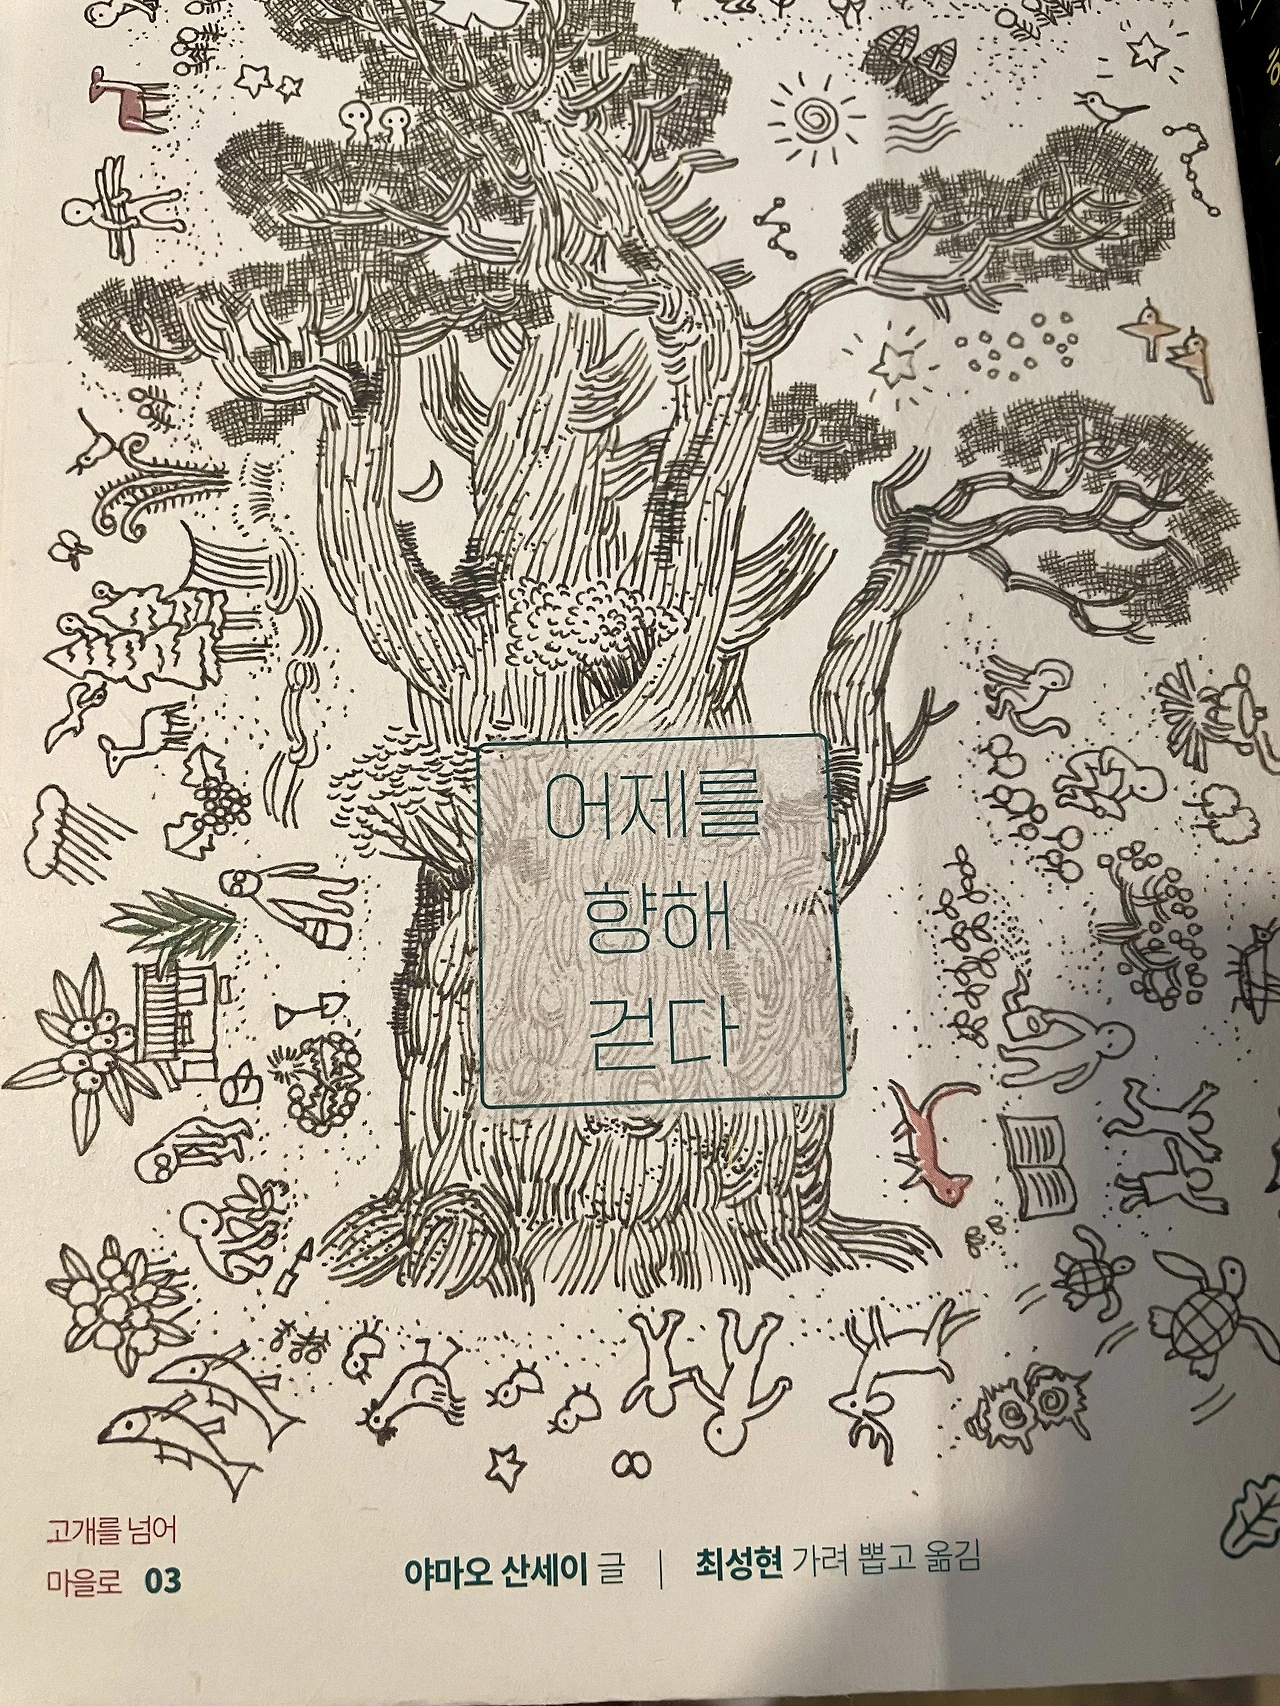 어제를
향해
걷다
고개를 넘어
마을로 03
야마오 산세이 글 | 최성현 가려 뽑고 옮김